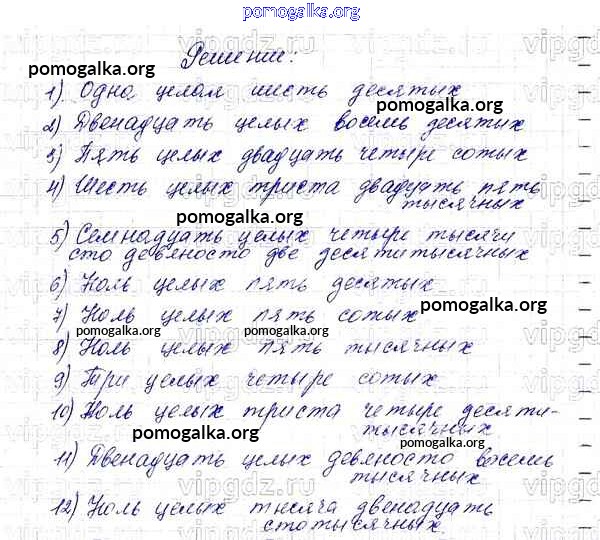 pomogalka.org
Решение:
pomogalka.org
1) Одна целая шесть десятых
pomogalka.org
2) Двенадцать целых восемь десятых
3) Пять целых двадцать четыре сотых
4) Шесть целых триста двадцать пять
тысячных
pomogalka.org
5) Семнадцать целых четыре тысячи
сто девяносто две десятитысячных
6) Ноль целых пять десятых
pomogalka.org
7) Ноль целых пять сотых
pomogalka.org pomogalka.org
8) Ноль целых пять тысячных
9) Три целых четыре сотых
10) Ноль целых триста четыре десяти-
тысячных
pomogalka.org pomogalka.org
11) Двенадцать целых девяносто восемь
тысячных
pomogalka.org
12) Ноль целых тысяча двенадцать
стотысячных
pomogalka.org